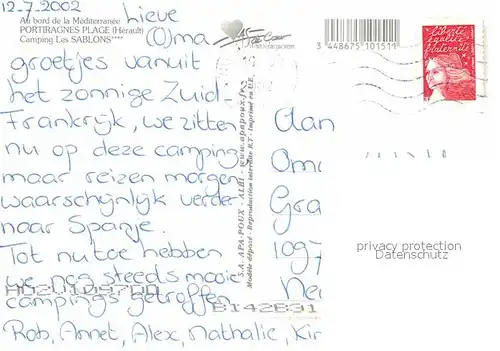 12.7.2002
Au bord de la Méditerranée
PORTIRAGNES PLAGE (Hérault)
Camping Les SABLONS****
Lieve
(O)ma
groetjes vanuit
het zonnige Zuid
Frankrijk, we zitten
nu op deze camping
maar reizen morgen
waarschijnlijk verder
naar Spanje.
Tot nu toe hebben
we nog steeds mooie
campings getroffen
Rob, Annet, Alex, Nathalie, Kir
S.A. APA-POUX - ALBI - www.apapoux.fr
Modèle déposé - Reproduction interdite R.T - Imprimé en U.E.
3 448675 101511
Liberté
égalité
fraternité
Aan
Om
Gra
1097
Ne
privacy protection
Datenschutz